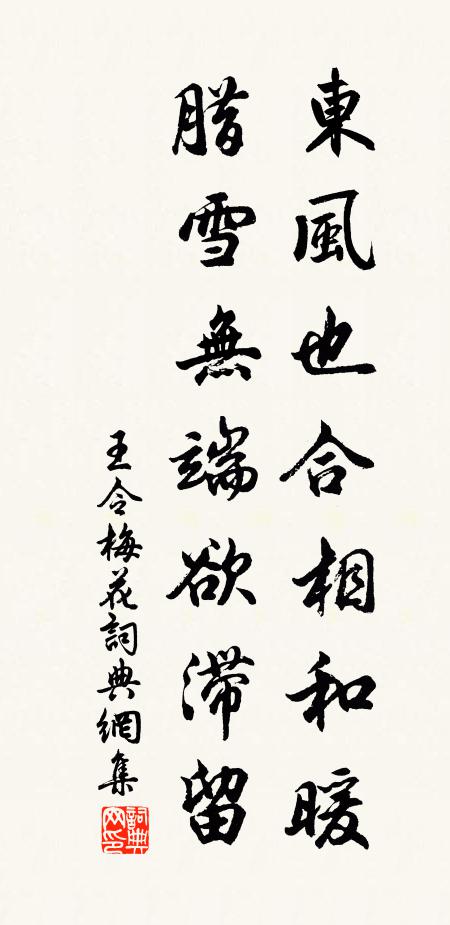 東風也合相和暖
腊雪無端欲滞留
王令梅花詞典網集
詞典網印